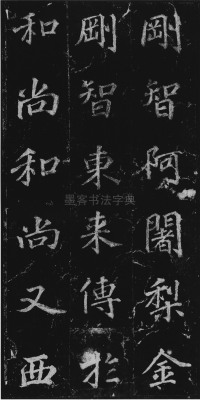 剛智阿闍梨金
剛智東来傳於
和尚和尚又西
墨客书法字典